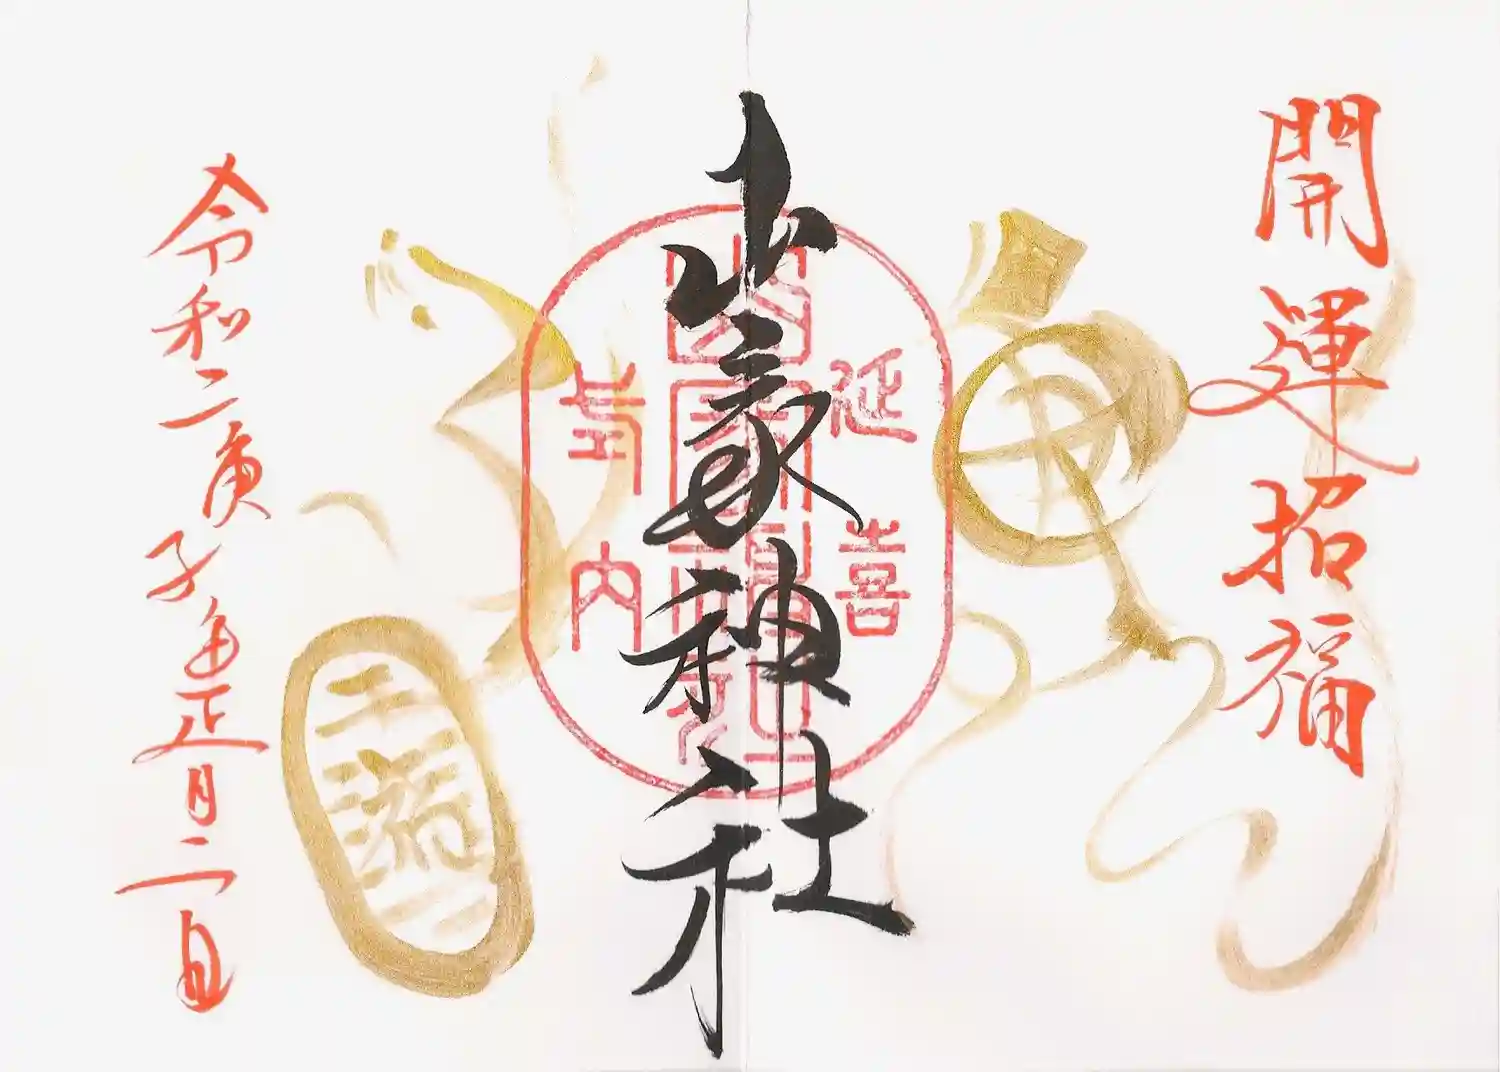 開運招福
延喜
山家神社
式内
令和二庚子年正月二日